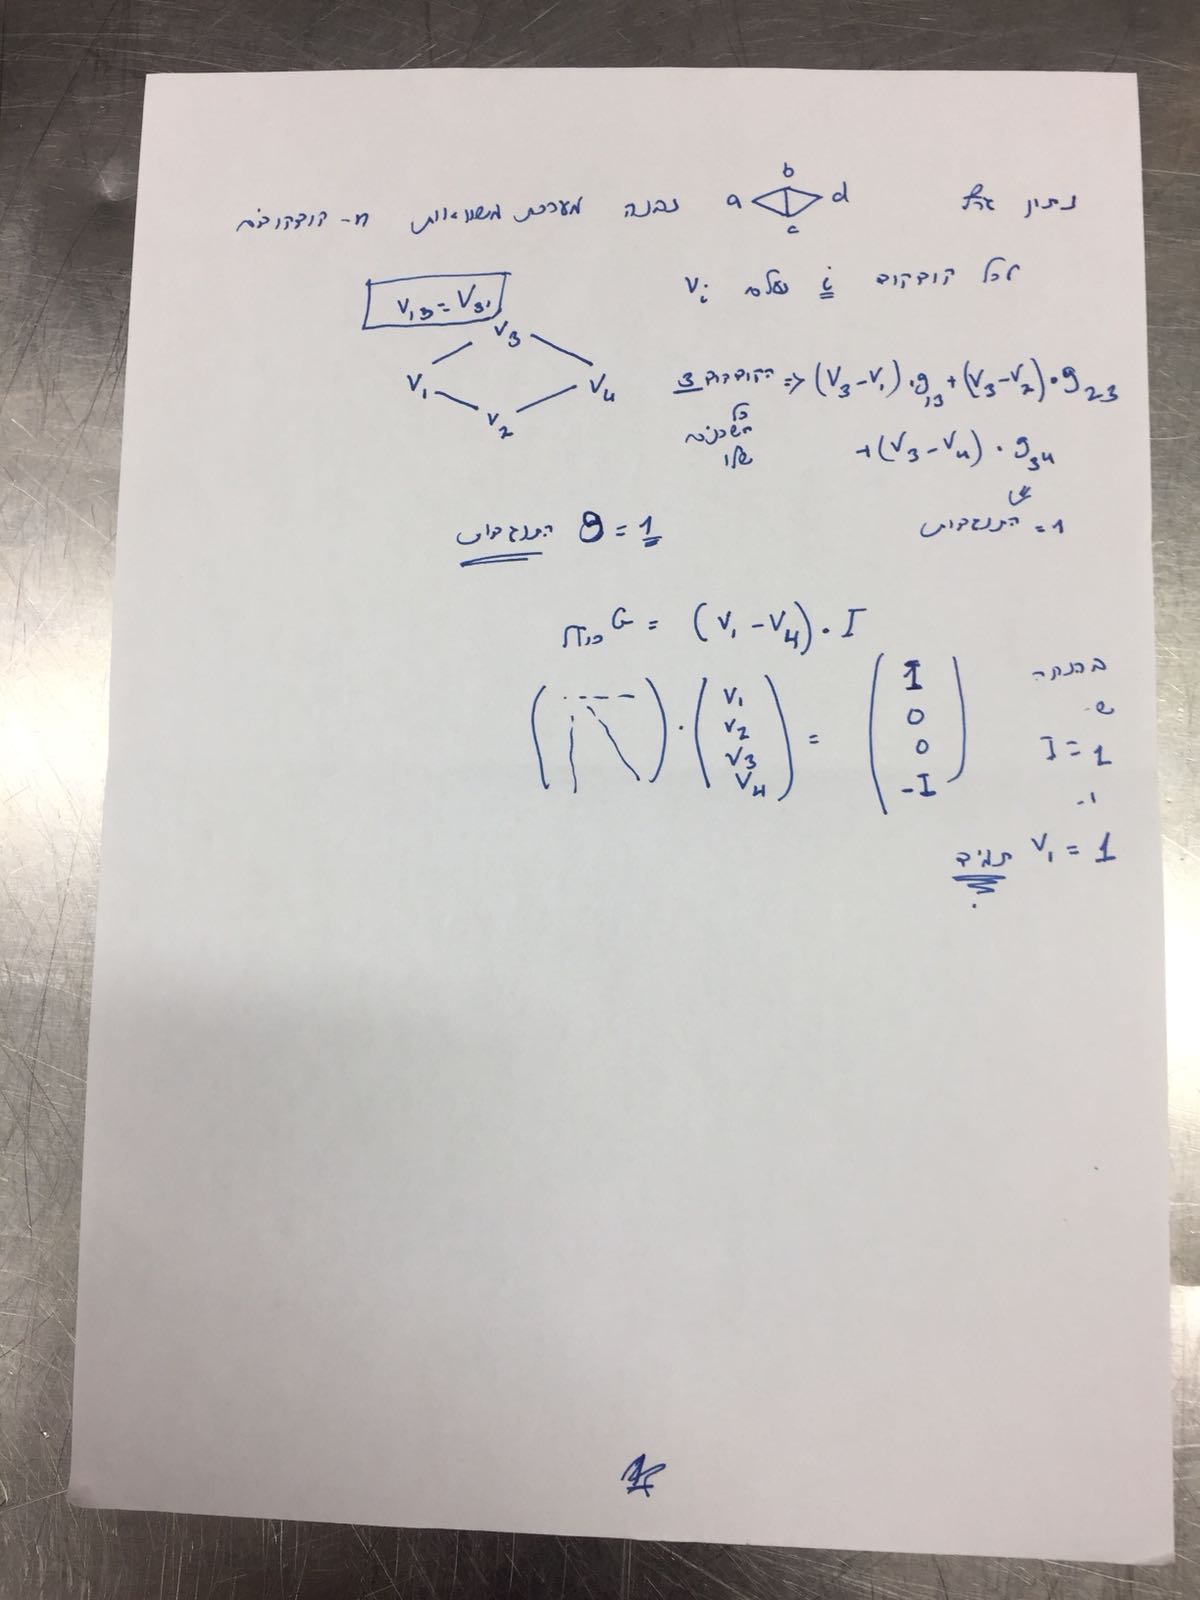 נתון גרף a b c d נבנה מערכת משוואות n- קודקודים
לכל קודקוד i נשלם Vi
V13 = V31
V3
V1 V4
V2
הקודקוד 3 => (V3-V1)·g13+(V3-V2)·g23
כל
השכנים
שלו
+(V3-V4)·g34
התנגדות = 1
התנגדות g = 1
G = (V1-V4)·I
( ) · (V1 V2 V3 V4) = (I 0 0 -I)
בהנחה
ש-
I = 1
ו-
V1 = 1 תמיד